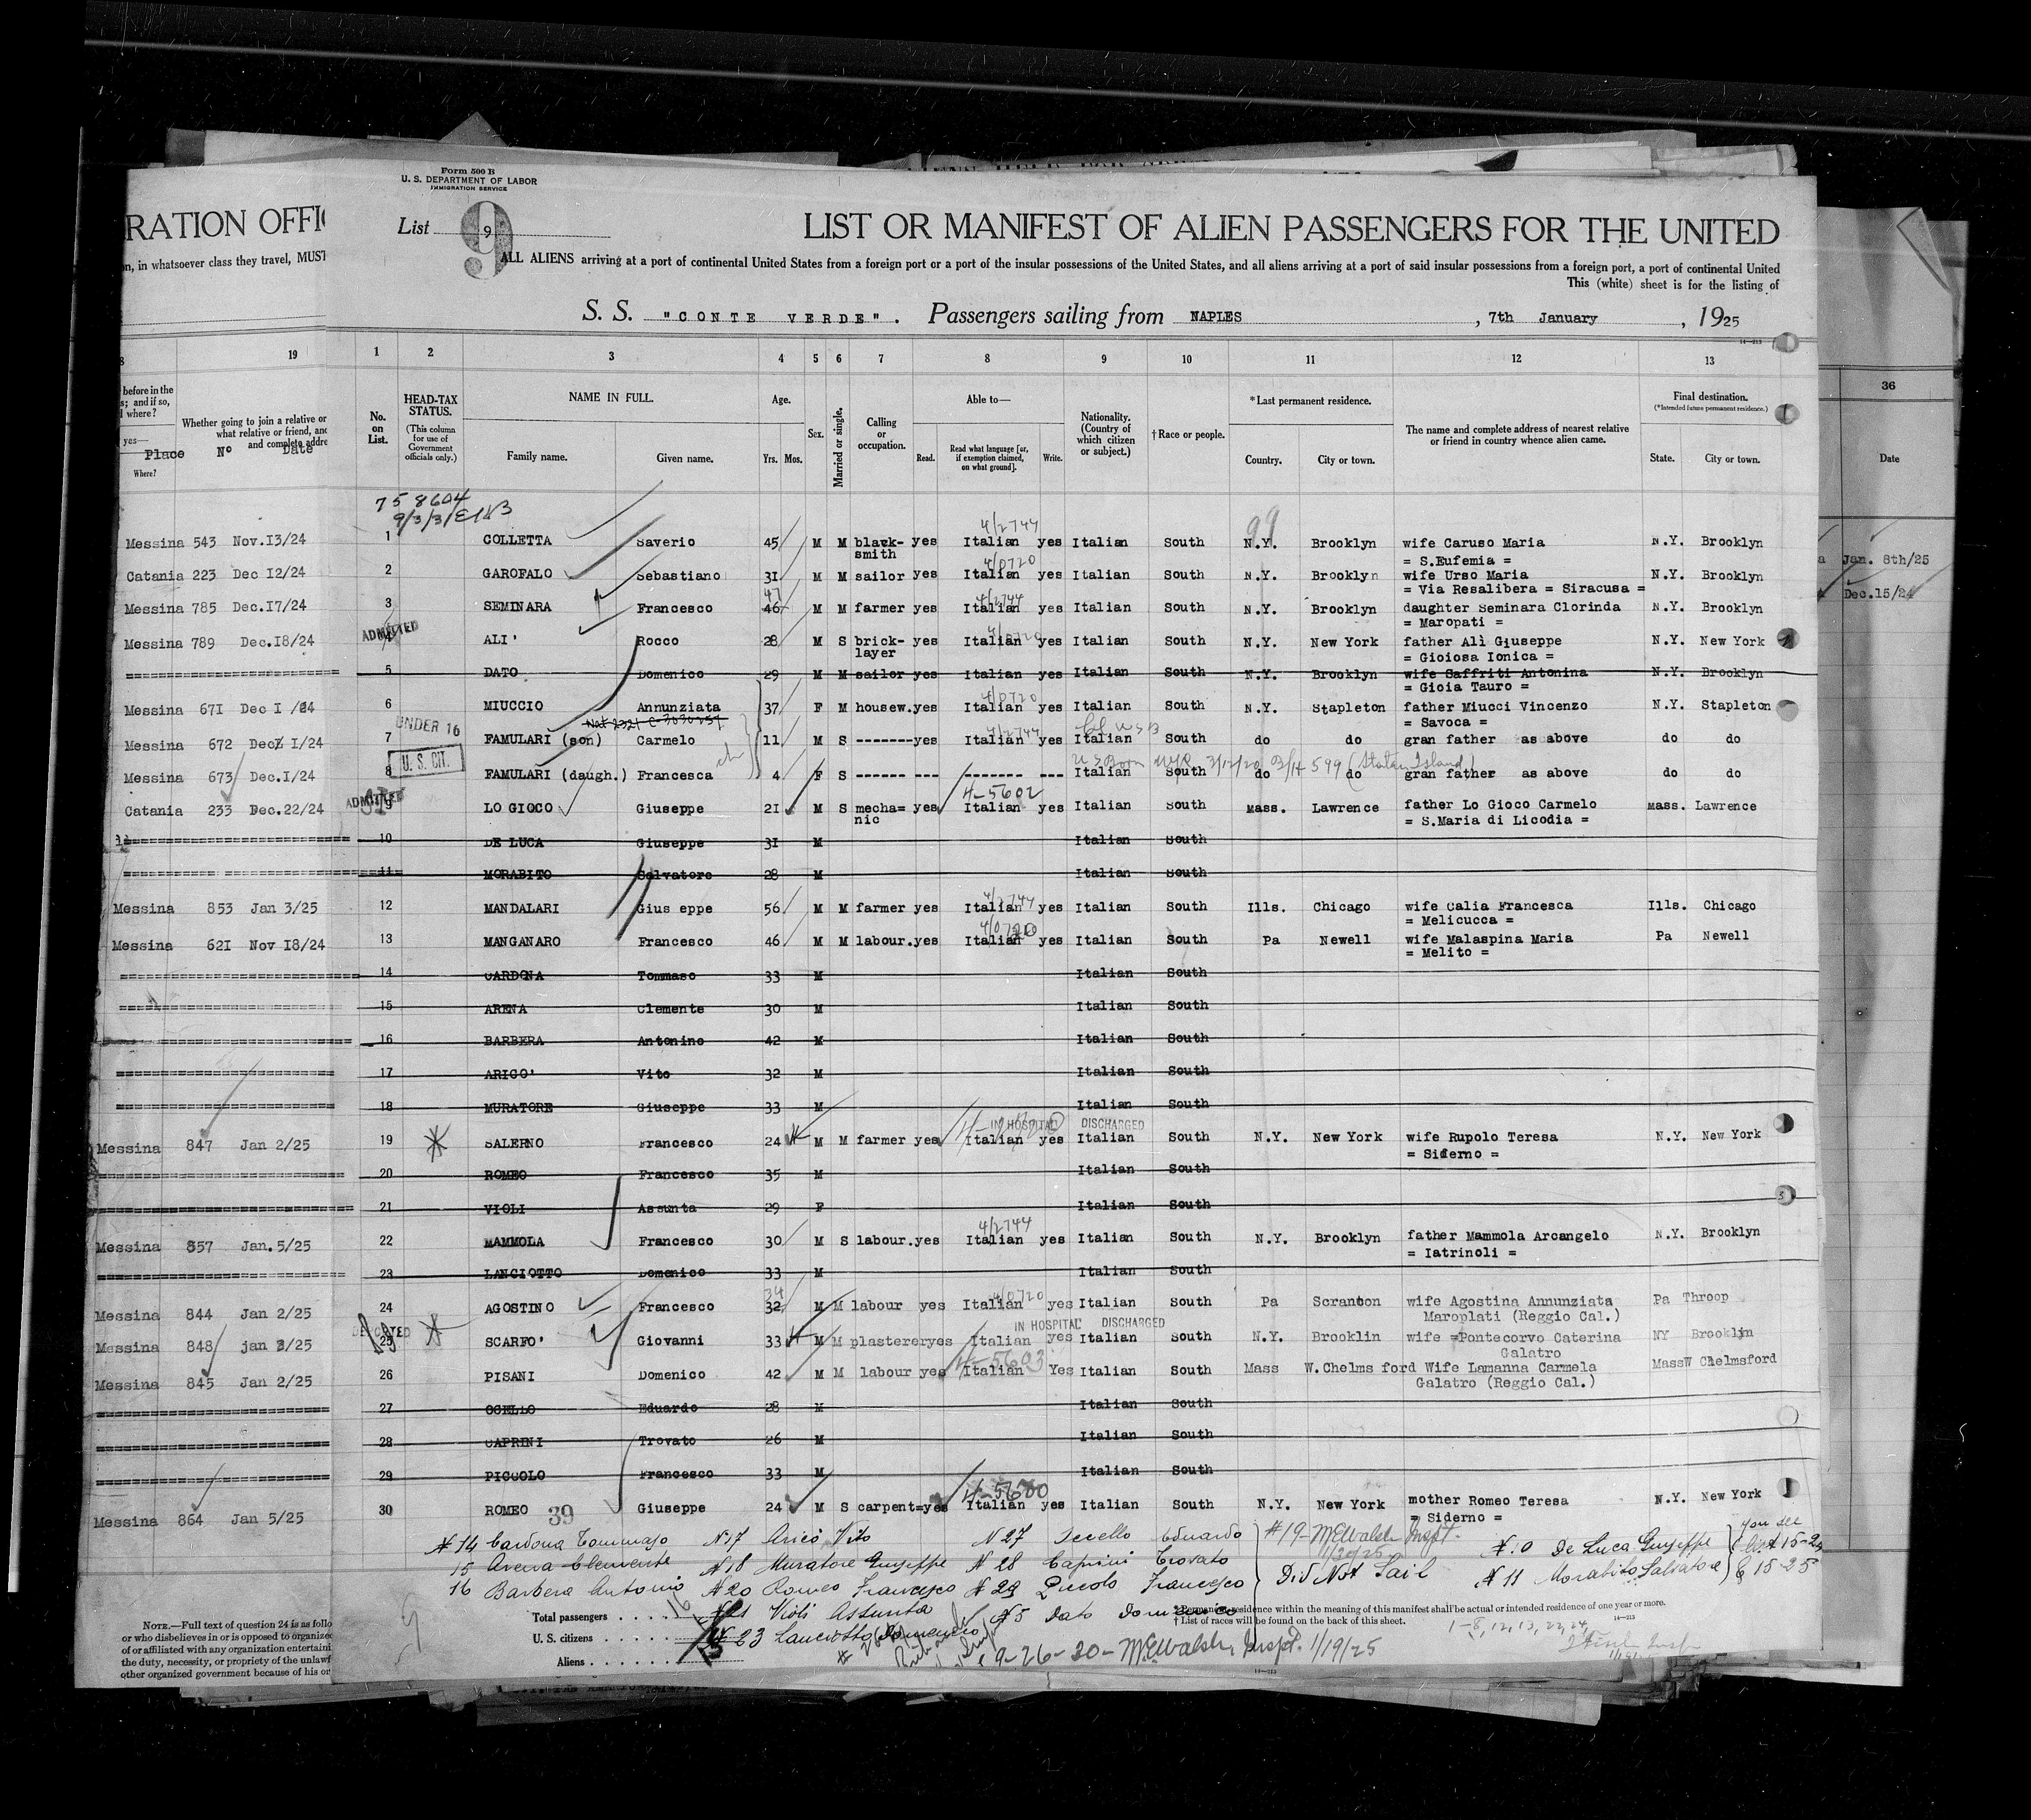 Form 500 B
U. S. DEPARTMENT OF LABOR
IMMIGRATION SERVICE
RATION OFFI
List 9
9
LIST OR MANIFEST OF ALIEN PASSENGERS FOR THE UNITED
n, in whatsoever class they travel, MUST
ALL ALIENS arriving at a port of continental United States from a foreign port or a port of the insular possessions of the United States, and all aliens arriving at a port of said insular possessions from a foreign port, a port of continental United
This (white) sheet is for the listing of
S. S. "CONTE VERDE". Passengers sailing from NAPLES, 7th January, 1925
14—213
8 19 1 2 3 4 5 6 7 8 9 10 11 12 13 36
before in the
s; and if so,
where?
yes—
Place
Where?
Whether going to join a relative or
what relative or friend, and
and complete addre
No Date
No. on List.
HEAD-TAX STATUS.
(This column for use of Government officials only.)
NAME IN FULL.
Family name. Given name.
Age.
Yrs. Mos.
Sex.
Married or single.
Calling or occupation.
Able to—
Read. Read what language [or, if exemption claimed, on what ground]. Write.
Nationality. (Country of which citizen or subject.)
†Race or people.
*Last permanent residence.
Country. City or town.
The name and complete address of nearest relative or friend in country whence alien came.
Final destination.
(*Intended future permanent residence.)
State. City or town.
Date
758604
99
4/2744
Messina 543 Nov.13/24 1 COLLETTA Saverio 45 M M black-smith yes Italian yes Italian South N.Y. Brooklyn wife Caruso Maria = S.Eufemia = N.Y. Brooklyn
Jan. 8th/25
4/0720
Catania 223 Dec 12/24 2 GAROFALO Sebastiano 31 M M sailor yes Italian yes Italian South N.Y. Brooklyn wife Urso Maria = Via Resalibera = Siracusa = N.Y. Brooklyn
Dec.15/24
47 4/2744
Messina 785 Dec.17/24 3 SEMINARA Francesco 46 M M farmer yes Italian yes Italian South N.Y. Brooklyn daughter Seminara Clorinda = Maropati = N.Y. Brooklyn
ADMITTED 4/0720
Messina 789 Dec.18/24 4 ALI' Rocco 28 M S brick-layer yes Italian yes Italian South N.Y. New York father Alì Giuseppe = Gioiosa Ionica = N.Y. New York
5 DATO Domenico 29 M M sailor yes Italian yes Italian South N.Y. Brooklyn wife Saffriti Antonina = Gioia Tauro = N.Y. Brooklyn
4/0720
Messina 671 Dec 1 /24 6 MIUCCIO Annunziata 37 F M housew. yes Italian yes Italian South N.Y. Stapleton father Miucci Vincenzo = Savoca = N.Y. Stapleton
UNDER 16 4/2744
Messina 672 Dec 1/24 7 FAMULARI (son) Carmelo 11 M S ------- yes Italian yes Italian South do do gran father as above do do
U. S. CIT.
(Staten Island)
Messina 673 Dec.1/24 8 FAMULARI (daugh.) Francesca 4 F S ------ --- ------- --- Italian South do do gran father as above do do
ADMITTED 4-5602
Catania 233 Dec.22/24 9 LO GIOCO Giuseppe 21 M S mecha=nic yes Italian yes Italian South Mass. Lawrence father Lo Gioco Carmelo = S.Maria di Licodia = Mass. Lawrence
10 DE LUCA Giuseppe 31 M Italian South
11 MORABITO Salvatore 28 M Italian South
4/2744
Messina 853 Jan 3/25 12 MANDALARI Gius eppe 56 M M farmer yes Italian yes Italian South Ills. Chicago wife Calia Francesca = Melicucca = Ills. Chicago
Messina 621 Nov 18/24 13 MANGANARO Francesco 46 M M labour. yes Italian yes Italian South Pa Newell wife Malaspina Maria = Melito = Pa Newell
14 CARDONA Tommaso 33 M Italian South
15 ARENA Clemente 30 M Italian South
16 BARBERA Antonino 42 M Italian South
17 ARICO' Vito 32 M Italian South
18 MURATORE Giuseppe 33 M Italian South
IN HOSPITAL DISCHARGED
Messina 847 Jan 2/25 19 SALERNO Francesco 24 M M farmer yes Italian yes Italian South N.Y. New York wife Rupolo Teresa = Siderno = N.Y. New York
20 ROMEO Francesco 35 M Italian South
21 VIOLI Assunta 29 F Italian South
4/2744
Messina 857 Jan.5/25 22 MAMMOLA Francesco 30 M S labour. yes Italian yes Italian South N.Y. Brooklyn father Mammola Arcangelo = Iatrinoli = N.Y. Brooklyn
23 LANCIOTTO Domenico 33 M Italian South
34 4/0720
Messina 844 Jan 2/25 24 AGOSTINO Francesco 32 M M labour yes Italian yes Italian South Pa Scranton wife Agostina Annunziata Maroplati (Reggio Cal.) Pa Throop
DEPORTED IN HOSPITAL DISCHARGED
Messina 848 jan 2/25 25 SCARFO' Giovanni 33 M M plasterer yes Italian yes Italian South N.Y. Brooklin wife =Pontecorvo Caterina Galatro NY Brooklyn
4-5603
Messina 845 Jan 2/25 26 PISANI Domenico 42 M M labour yes Italian Yes Italian South Mass W.Chelms ford Wife Lamanna Carmela Galatro (Reggio Cal.) Mass W Chelmsford
27 OCELLO Eduardo 28 M Italian South
28 CAPRINI Trovato 26 M Italian South
29 PICCOLO Francesco 33 M Italian South
4-5600
Messina 864 Jan 5/25 30 ROMEO 39 Giuseppe 24 M S carpent= yes Italian yes Italian South N.Y. New York mother Romeo Teresa = Siderno = N.Y. New York
# 14 Cardona Tommaso N 17 Aricò Vito N 27 Ocello Eduardo #19- McWalsh Inspt. # 10 De Luca Giuseppe you see
15 Arena Clemente N 18 Muratore Giuseppe # 28 Caprini Trovato Did Not Sail # 11 Morabito Salvatore
16 Barbera Antonio # 20 Romeo Francesco # 29 Piccolo Francesco
21 Violi Assunta # 5 Dato Domenico
# 23 Lanciotto Domenico
Total passengers
U. S. citizens
Aliens
9-26-30- McWalsh Inspt. 1/19/25
1-8, 12, 13, 22, 24
*Permanent residence within the meaning of this manifest shall be actual or intended residence of one year or more.
†List of races will be found on the back of this sheet.
14—213
NOTE.—Full text of question 24 is as follo
or who disbelieves in or is opposed to organized
of or affiliated with any organization entertaini
the duty, necessity, or propriety of the unlawf
other organized government because of his or